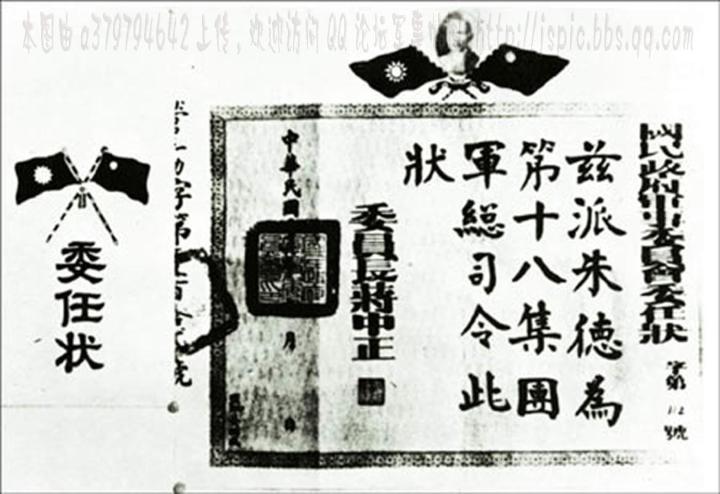 本图由 a379794642 上传，欢迎访问 QQ 论坛军事 http://ispic.bbs.qq.com
國民政府軍事委員會委任狀
字第 112 號
茲派朱德為
第十八集團
軍總司令此
狀
委員長蔣中正
中華民國
月 日
字第 號
委任状